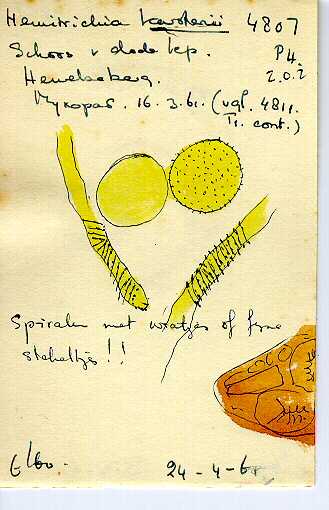 Hemitrichia karstenii 4807
Schors v dode iep. P4.
Hemelseberg. 2.0.2
Myxopar. 16.3.61. (vgl. 4811.
Tr. cont.)
Spiralen met wratjes of fyne
stekeltjes!!
24-4-61